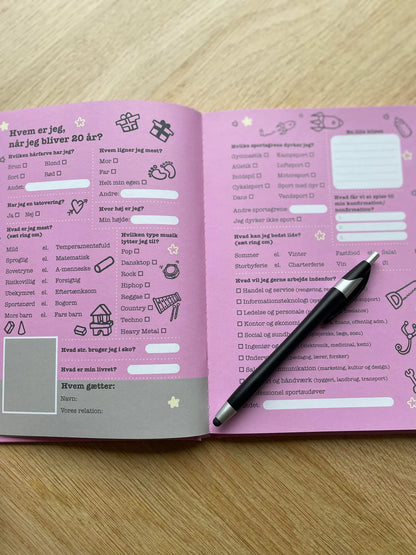 Hvem er jeg,
når jeg bliver 20 år?
Hvilken hårfarve har jeg?
Brun Blond
Sort Rød
Andet:
Har jeg en tatovering?
Ja Nej
Hvem er jeg mest?
(sæt ring om)
Mild el. Temperamentsfuld
Sproglig el. Matematisk
Sovetryne el. A-menneske
Risikovillig el. Forsigtig
Ubekymret el. Eftertænksom
Sportsnørd el. Bogorm
Mors barn el. Fars barn
Hvem ligner jeg mest?
Mor
Far
Helt min egen
Andre:
Hvor høj er jeg?
Min højde:
Hvilken type musik
lytter jeg til?
Pop
Dansktop
Rock
Hiphop
Reggae
Country
Techno
Heavy Metal
Hvad str. bruger jeg i sko?
Hvad er min livret?
Hvem gætter:
Navn:
Vores relation:
Hvilke sportsgrene dyrker jeg?
Gymnastik Kampsport
Atletik Luftsport
Boldspil Motorsport
Cykelsport Sport med dyr
Dans Vandsport
Andre sportsgrene
Jeg dyrker ikke sport
Hvad får vi at spise til
min konfirmation/
nonfirmation?
Hvad kan jeg bedst lide?
(sæt ring om)
Sommer el. Vinter Fastfood Salat
Storbyferie el. Charterferie Vin Øl
Hvad vil jeg gerne arbejde indenfor?
Handel og service
Informationsteknologi
Ledelse og personale
Kontor og økonomi
Social og sundhed
(elektronik, medicinal, kemi)
(pædagog, lærer, forsker)
kommunikation (marketing, kultur og design)
og håndværk (byggeri, landbrug, transport)
Professionel sportsudøver